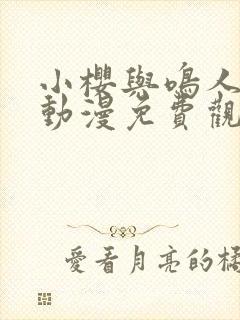 小櫻與鳴人
動漫免費觀
愛看月亮的橘